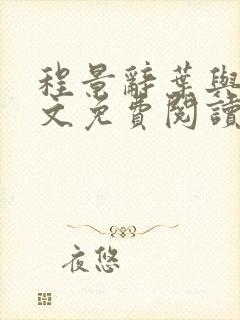 程景辭葉與
文免費閱讀
夜悠